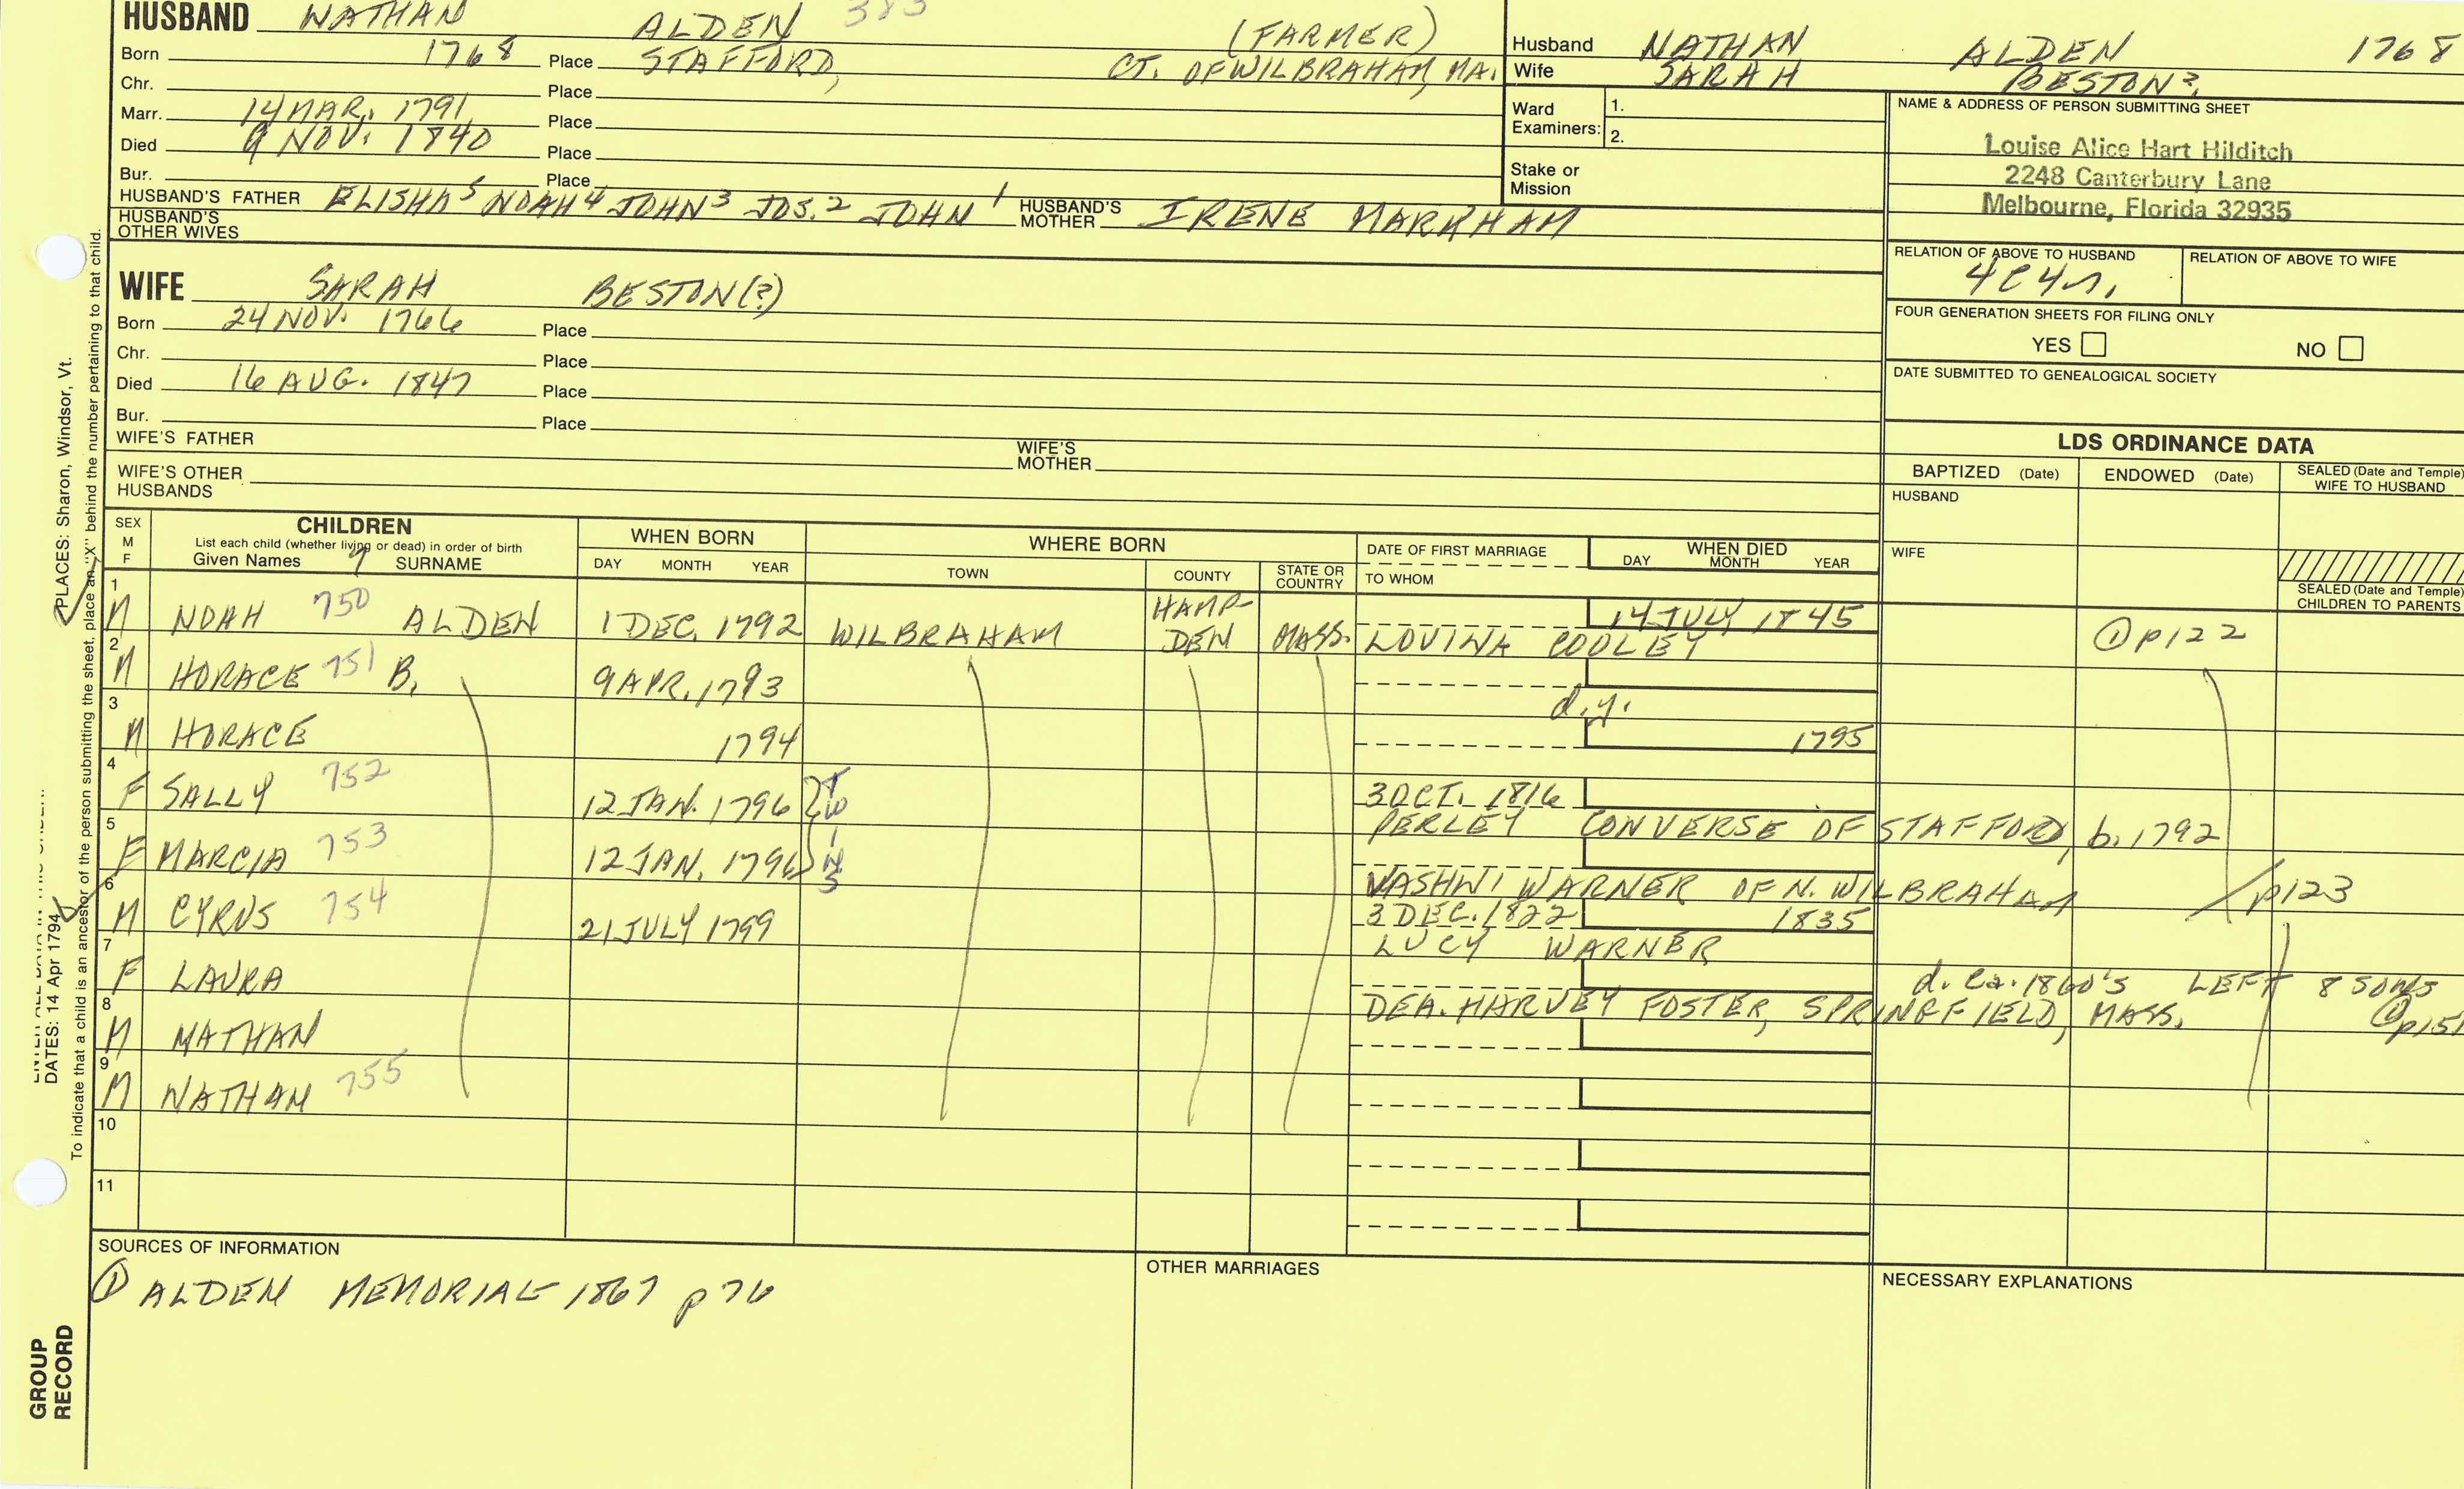 HUSBAND NATHAN ALDEN 383 (FARMER)
Born 1768 Place STAFFORD, CT. OF WILBRAHAM, MA.
Chr. Place
Marr. 14 MAR. 1791 Place
Died 9 NOV. 1840 Place
Bur. Place
HUSBAND'S FATHER ELISHA5 NOAH4 JOHN3 JOS.2 JOHN1 HUSBAND'S MOTHER IRENE MARKHAM
HUSBAND'S OTHER WIVES
Husband NATHAN ALDEN 1768
Wife SARAH BESTON?
Ward Examiners: 1.
2.
Stake or Mission
NAME & ADDRESS OF PERSON SUBMITTING SHEET
Louise Alice Hart Hilditch
2248 Canterbury Lane
Melbourne, Florida 32935
RELATION OF ABOVE TO HUSBAND RELATION OF ABOVE TO WIFE
FOUR GENERATION SHEETS FOR FILING ONLY
YES NO
DATE SUBMITTED TO GENEALOGICAL SOCIETY
WIFE SARAH BESTON(?)
Born 24 NOV. 1766 Place
Chr. Place
Died 16 AUG. 1847 Place
Bur. Place
WIFE'S FATHER WIFE'S MOTHER
WIFE'S OTHER HUSBANDS
LDS ORDINANCE DATA
BAPTIZED (Date) ENDOWED (Date) SEALED (Date and Temple) WIFE TO HUSBAND
HUSBAND
WIFE
SEALED (Date and Temple) CHILDREN TO PARENTS
SEX M F CHILDREN WHEN BORN WHERE BORN DATE OF FIRST MARRIAGE WHEN DIED
List each child (whether living or dead) in order of birth
Given Names 7 SURNAME DAY MONTH YEAR TOWN COUNTY STATE OR COUNTRY TO WHOM DAY MONTH YEAR
1 M NOAH 750 ALDEN 1 DEC. 1792 WILBRAHAM HAMP-DEN MASS. 14 JULY 1845
LOVINA COOLEY ① p122
2 M HORACE 751 B. 9 APR. 1793
d.y.
3 M HORACE 1794 1795
4 F SALLY 752 12 JAN. 1796 TWINS 3 OCT. 1816
PERLEY CONVERSE OF STAFFORD, b. 1792
5 F MARCIA 753 12 JAN. 1796
WARNER OF N. WILBRAHAM p123
6 M CYRUS 754 21 JULY 1799 3 DEC. 1822 1835
LUCY WARNER
7 F LAURA d. ca. 1860's LEFT 8 SONS
DEA. HARVEY FOSTER, SPRINGFIELD, MASS. ① p151
8 M NATHAN
9 M NATHAN 755
10
11
SOURCES OF INFORMATION
① ALDEN MEMORIAL 1867 p 76
OTHER MARRIAGES
NECESSARY EXPLANATIONS
DATES: 14 Apr 1794
PLACES: Sharon, Windsor, Vt.
To indicate that a child is an ancestor of the person submitting the sheet, place an "X" behind the number pertaining to that child.
GROUP RECORD